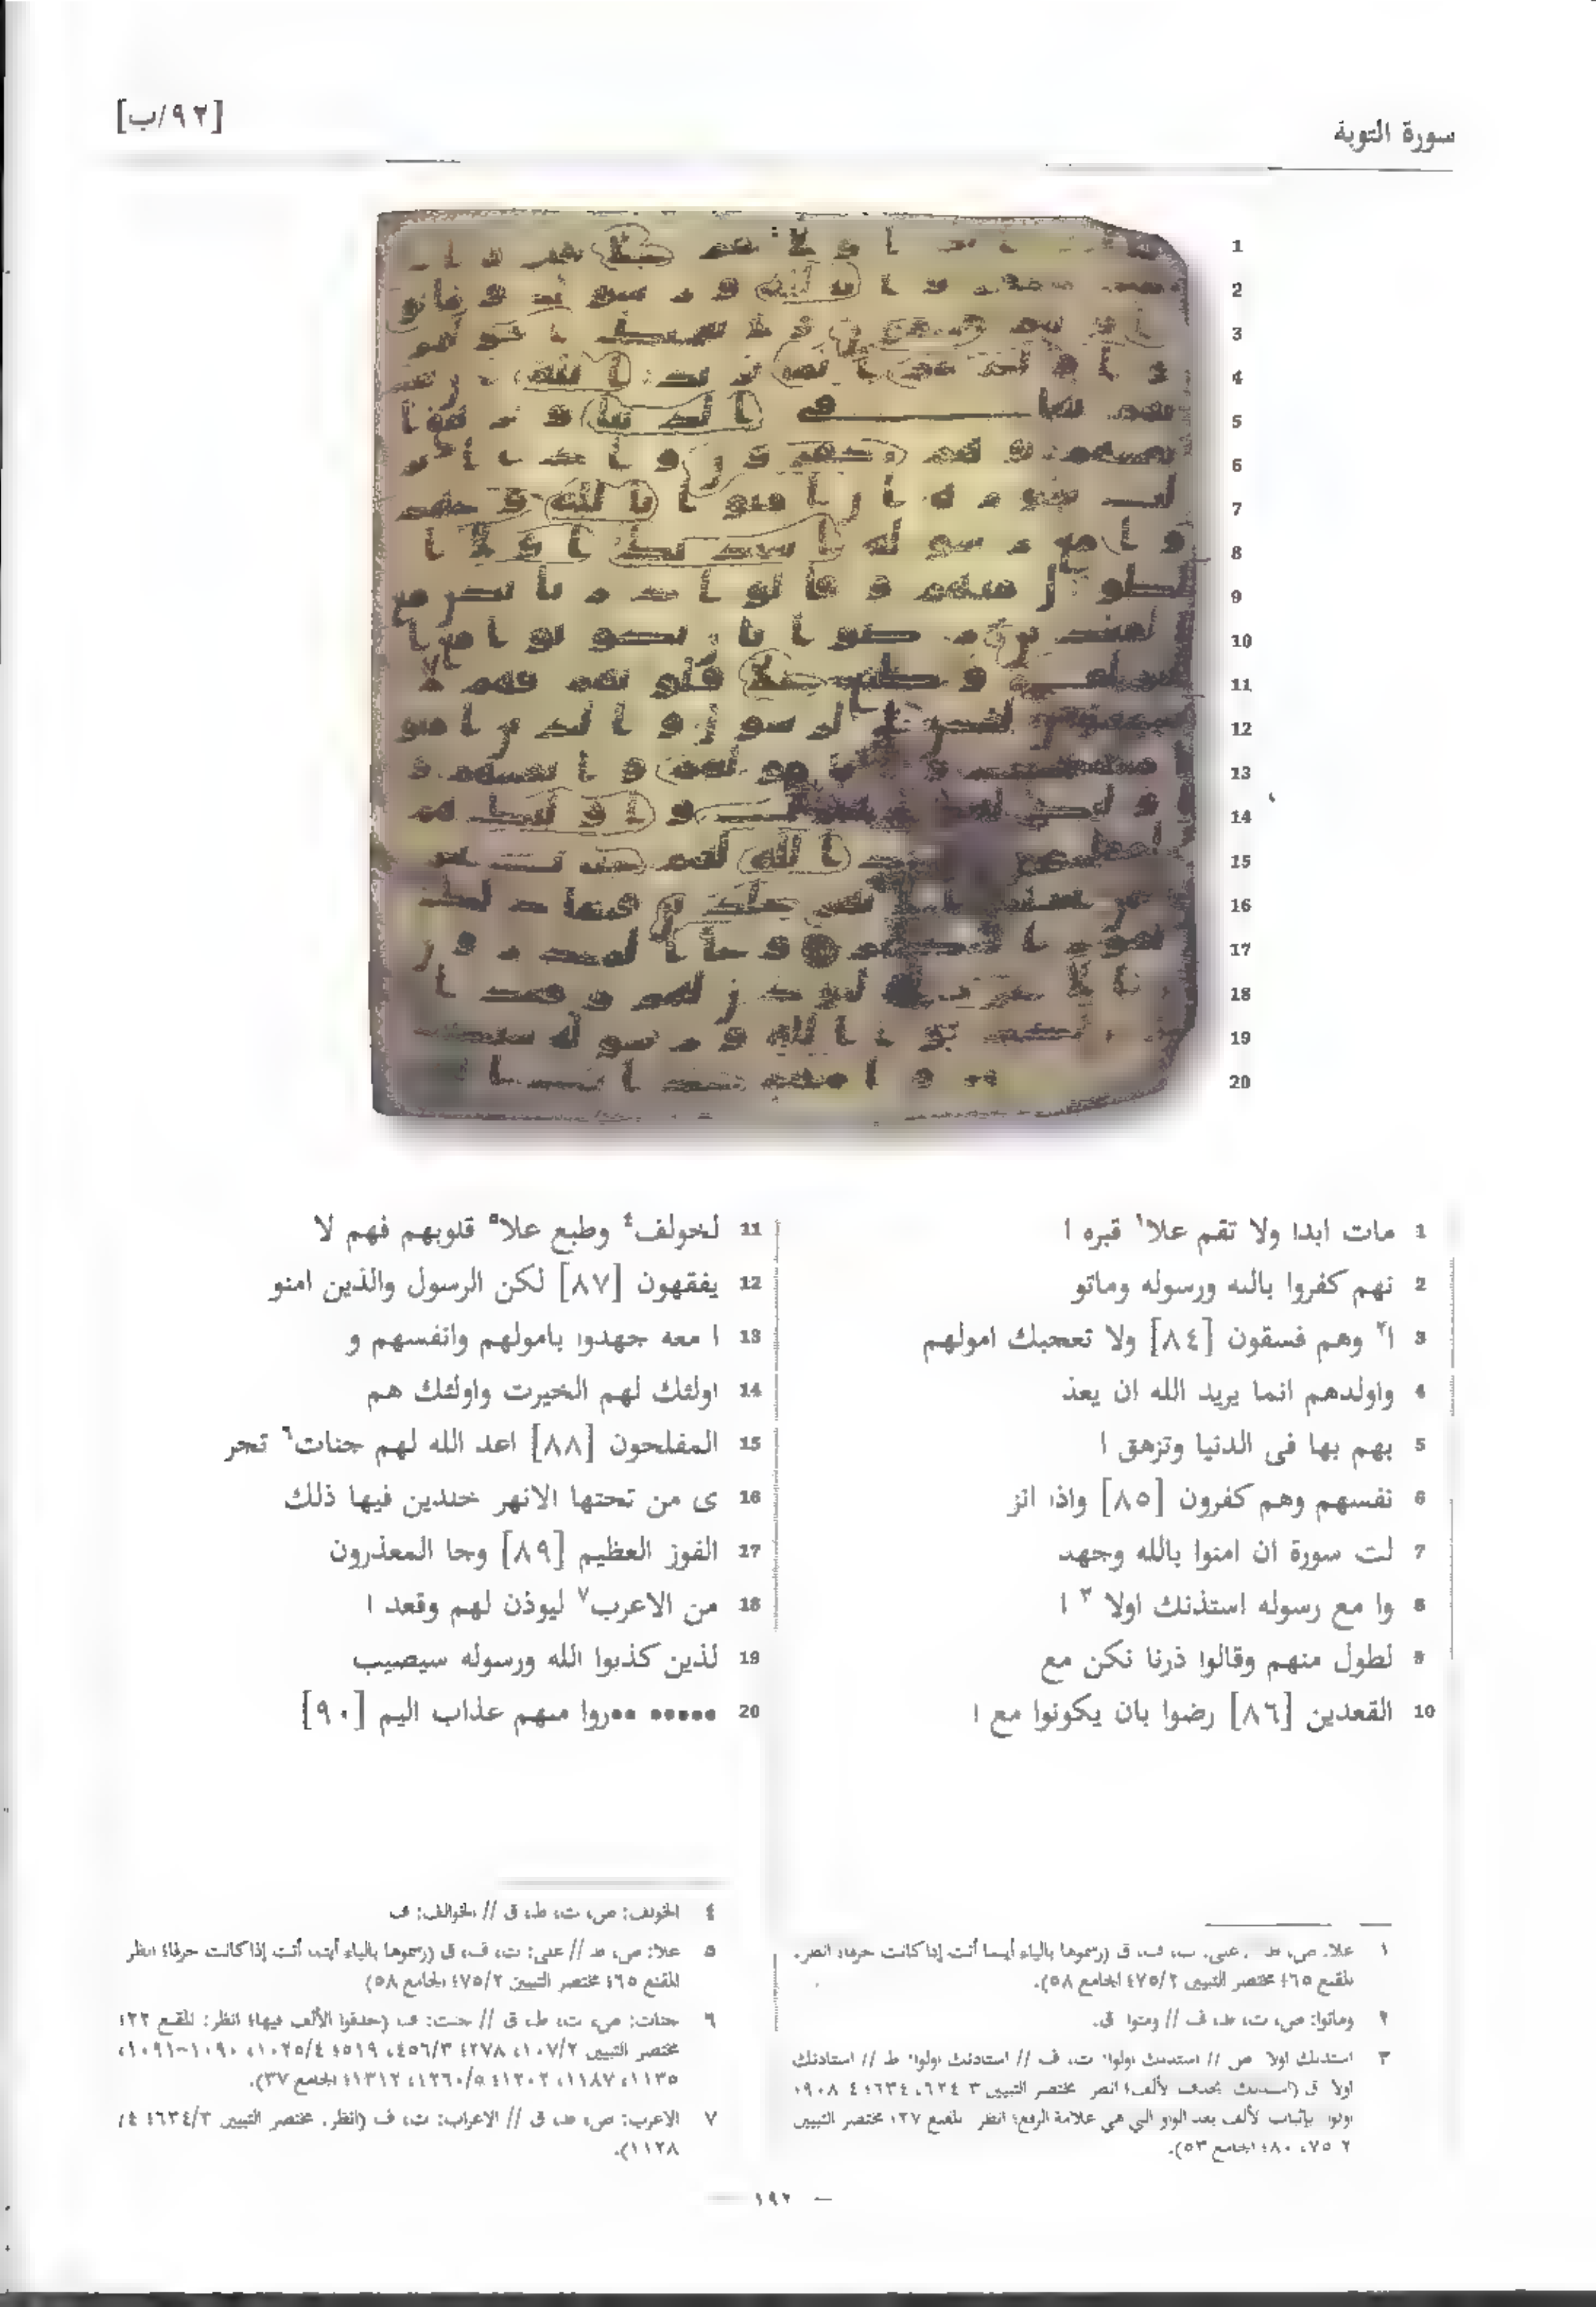 سورة التوبة
[٩٢/ب]
1 مات ابدا ولا تقم علا١ قبره ا
2 نهم كفروا بالله ورسوله وماتو
3 ا٢ وهم فسقون [٨٤] ولا تعجبك امولهم
4 واولدهم انما يريد الله ان يعذ
5 بهم بها فى الدنيا وتزهق ا
6 نفسهم وهم كفرون [٨٥] واذا انز
7 لت سورة ان امنوا بالله وجهد
8 وا مع رسوله استذنك اولا ٣ ا
9 لطول منهم وقالوا ذرنا نكن مع
10 القعدين [٨٦] رضوا بان يكونوا مع ا
11 لخولف٤ وطبع علا٥ قلوبهم فهم لا
12 يفقهون [٨٧] لكن الرسول والذين امنو
13 ا معه جهدوا بامولهم وانفسهم و
14 اولئك لهم الخيرت واولئك هم
15 المفلحون [٨٨] اعد الله لهم جنات٦ تجر
16 ى من تحتها الانهر خلدين فيها ذلك
17 الفوز العظيم [٨٩] وجا المعذرون
18 من الاعرب٧ ليوذن لهم وقعد ا
19 لذين كذبوا الله ورسوله سيصيب
20 ••••• ••روا منهم عذاب اليم [٩٠]
١ علا: ص، ط // على: ت، ف، ق (رسموها بالياء أينما أتت إذا كانت حرفا؛ انظر:
المقنع ٦٥؛ مختصر التبيين ٧٥/٢؛ الجامع ٥٨).
٢ وماتوا: ص، ت، ط، ف // ومتوا: ق.
٣ استذنك اولا: ص // استذنك اولوا: ت، ف // استاذنك اولوا: ط // استاذنك
اولا: ق
٧٥، ٨٠؛ الجامع ٥٣).
٤ الخولف: ص، ت، ط، ق // الخوالف: ف
٥ علا: ص، ط // على: ت، ف، ق (رسموها بالياء أينما أتت إذا كانت حرفا؛ انظر
المقنع ٦٥؛ مختصر التبيين ٧٥/٢؛ الجامع ٥٨)
٦ جنات: ص، ت، ط، ق // جنت: ف (حذفوا الألف فيها؛ انظر: المقنع ٢٢؛
مختصر التبيين ١٠٧/٢، ٢٧٨؛ ٤٥٦/٣، ٥١٩؛ ١٠٢٥/٤، ١٠٩٠-١٠٩١،
١١٣٥، ١١٨٧، ١٢٠٢؛ ١٢٦٠/٥، ١٣١٢؛ الجامع ٣٧).
٧ الاعرب: ص، ط، ق // الاعراب: ت، ف (انظر: مختصر التبيين ٦٣٤/٣؛ ٤/
١١٢٨).
– ١٩٢ –